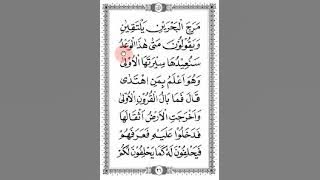 مَرَجَ الْبَحْرَيْنِ يَلْتَقِيٰنِ
وَيَقُوْلُوْنَ مَتٰى هٰذَا الْوَعْدُ
سَنُعِيْدُهَا سِيْرَتَهَا الْاُوْلٰى
وَهُوَ اَعْلَمُ بِمَنِ اهْتَدٰى
قَالَ فَمَا بَالُ الْقُرُوْنِ الْاُوْلٰى
وَاَخْرَجَتِ الْاَرْضُ اَثْقَالَهَا
فَدَخَلُوْا عَلَيْهِ فَعَرَفَهُمْ
فَيَحْلِفُوْنَ لَهٗ كَمَا يَحْلِفُوْنَ لَكُمْ